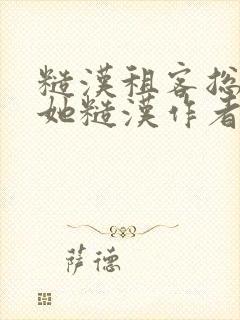 糙漢租客总
她糙漢作者
萨德